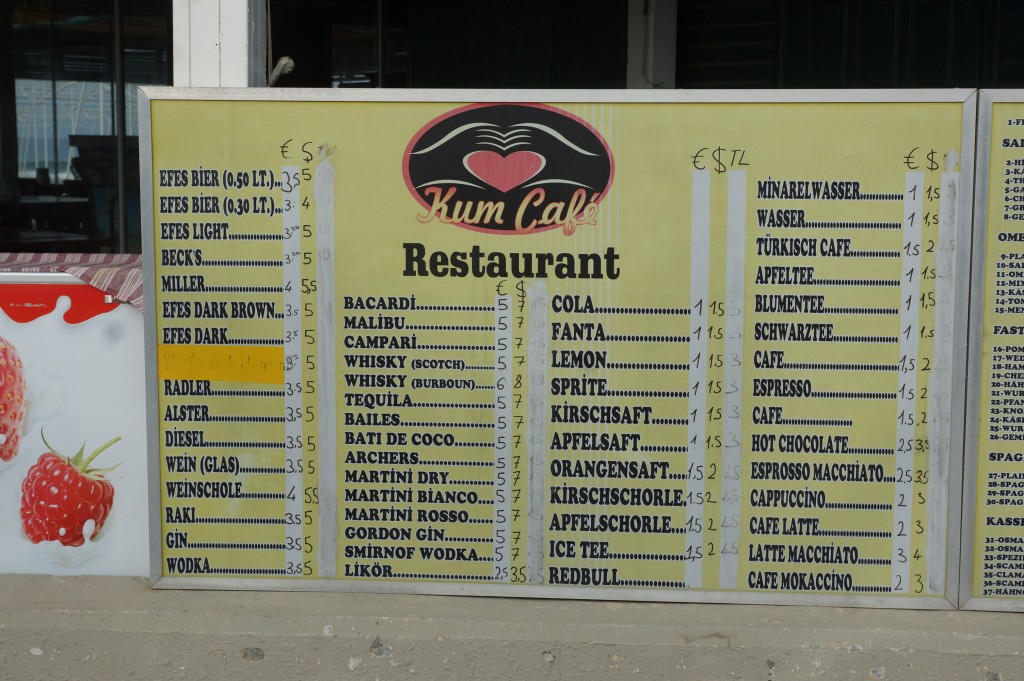 Kum Café
Restaurant
€ $
EFES BİER (0.50 LT.)... 3,5 5
EFES BİER (0.30 LT.)... 3. 4
EFES LIGHT............ 3.50 5
BECK'S............ 3.50 5
MILLER............ 4 5,5
EFES DARK BROWN... 3.5 5
EFES DARK............ 3.5 5
5
RADLER............ 3.5 5
ALSTER............ 3.5 5
DİESEL............ 3.5 5
WEİN (GLAS)............ 3.5 5
WEİNSCHOLE............ 4 5.5
RAKI............ 3.5 5
GİN............ 3.5 5
WODKA............ 3,5 5
€ $
BACARDİ............ 5 7
MALİBU............ 5 7
CAMPARİ............ 5 7
WHISKY (SCOTCH)............ 5 7
WHISKY (BURBOUN)............ 6 8
TEQUİLA............ 5 7
BAILES............ 5 7
BATI DE COCO............ 5 7
ARCHERS............ 5 7
MARTİNİ DRY............ 5 7
MARTİNİ BİANCO.... 5 7
MARTİNİ ROSSO...... 5 7
GORDON GİN............ 5 7
SMİRNOF WODKA.... 5 7
LİKÖR............ 2,5 3.5
€ $ TL
COLA............ 1 1.5 3
FANTA............ 1 1.5 3
LEMON............ 1 1.5 3
SPRİTE............ 1 1.5 3
KİRSCHSAFT............ 1 1.5 3
APFELSAFT............ 1 1.5 3
ORANGENSAFT...... 1.5 2 4.5
KİRSCHSCHORLE. 1.5 2 4.5
APFELSCHORLE..... 1.5 2 4.5
ICE TEE............ 1,5 2 4.5
REDBULL............
€ $
MİNARELWASSER............ 1 1,5
WASSER............ 1 1,5
TÜRKISCH CAFE............ 1.5 2
APFELTEE............ 1 1.5
BLUMENTEE............ 1 1.5
SCHWARZTEE............ 1 1.5
CAFE............ 1,5 2
ESPRESSO............ 1.5 2
CAFE............ 1.5 2
HOT CHOCOLATE............ 2.5 3.5
ESPROSSO MACCHİATO.... 2,5 3.5
CAPPUCCİNO............ 2 3
CAFE LATTE............ 2 3
LATTE MACCHİATO............ 3 4
CAFE MOKACCİNO............ 2 3